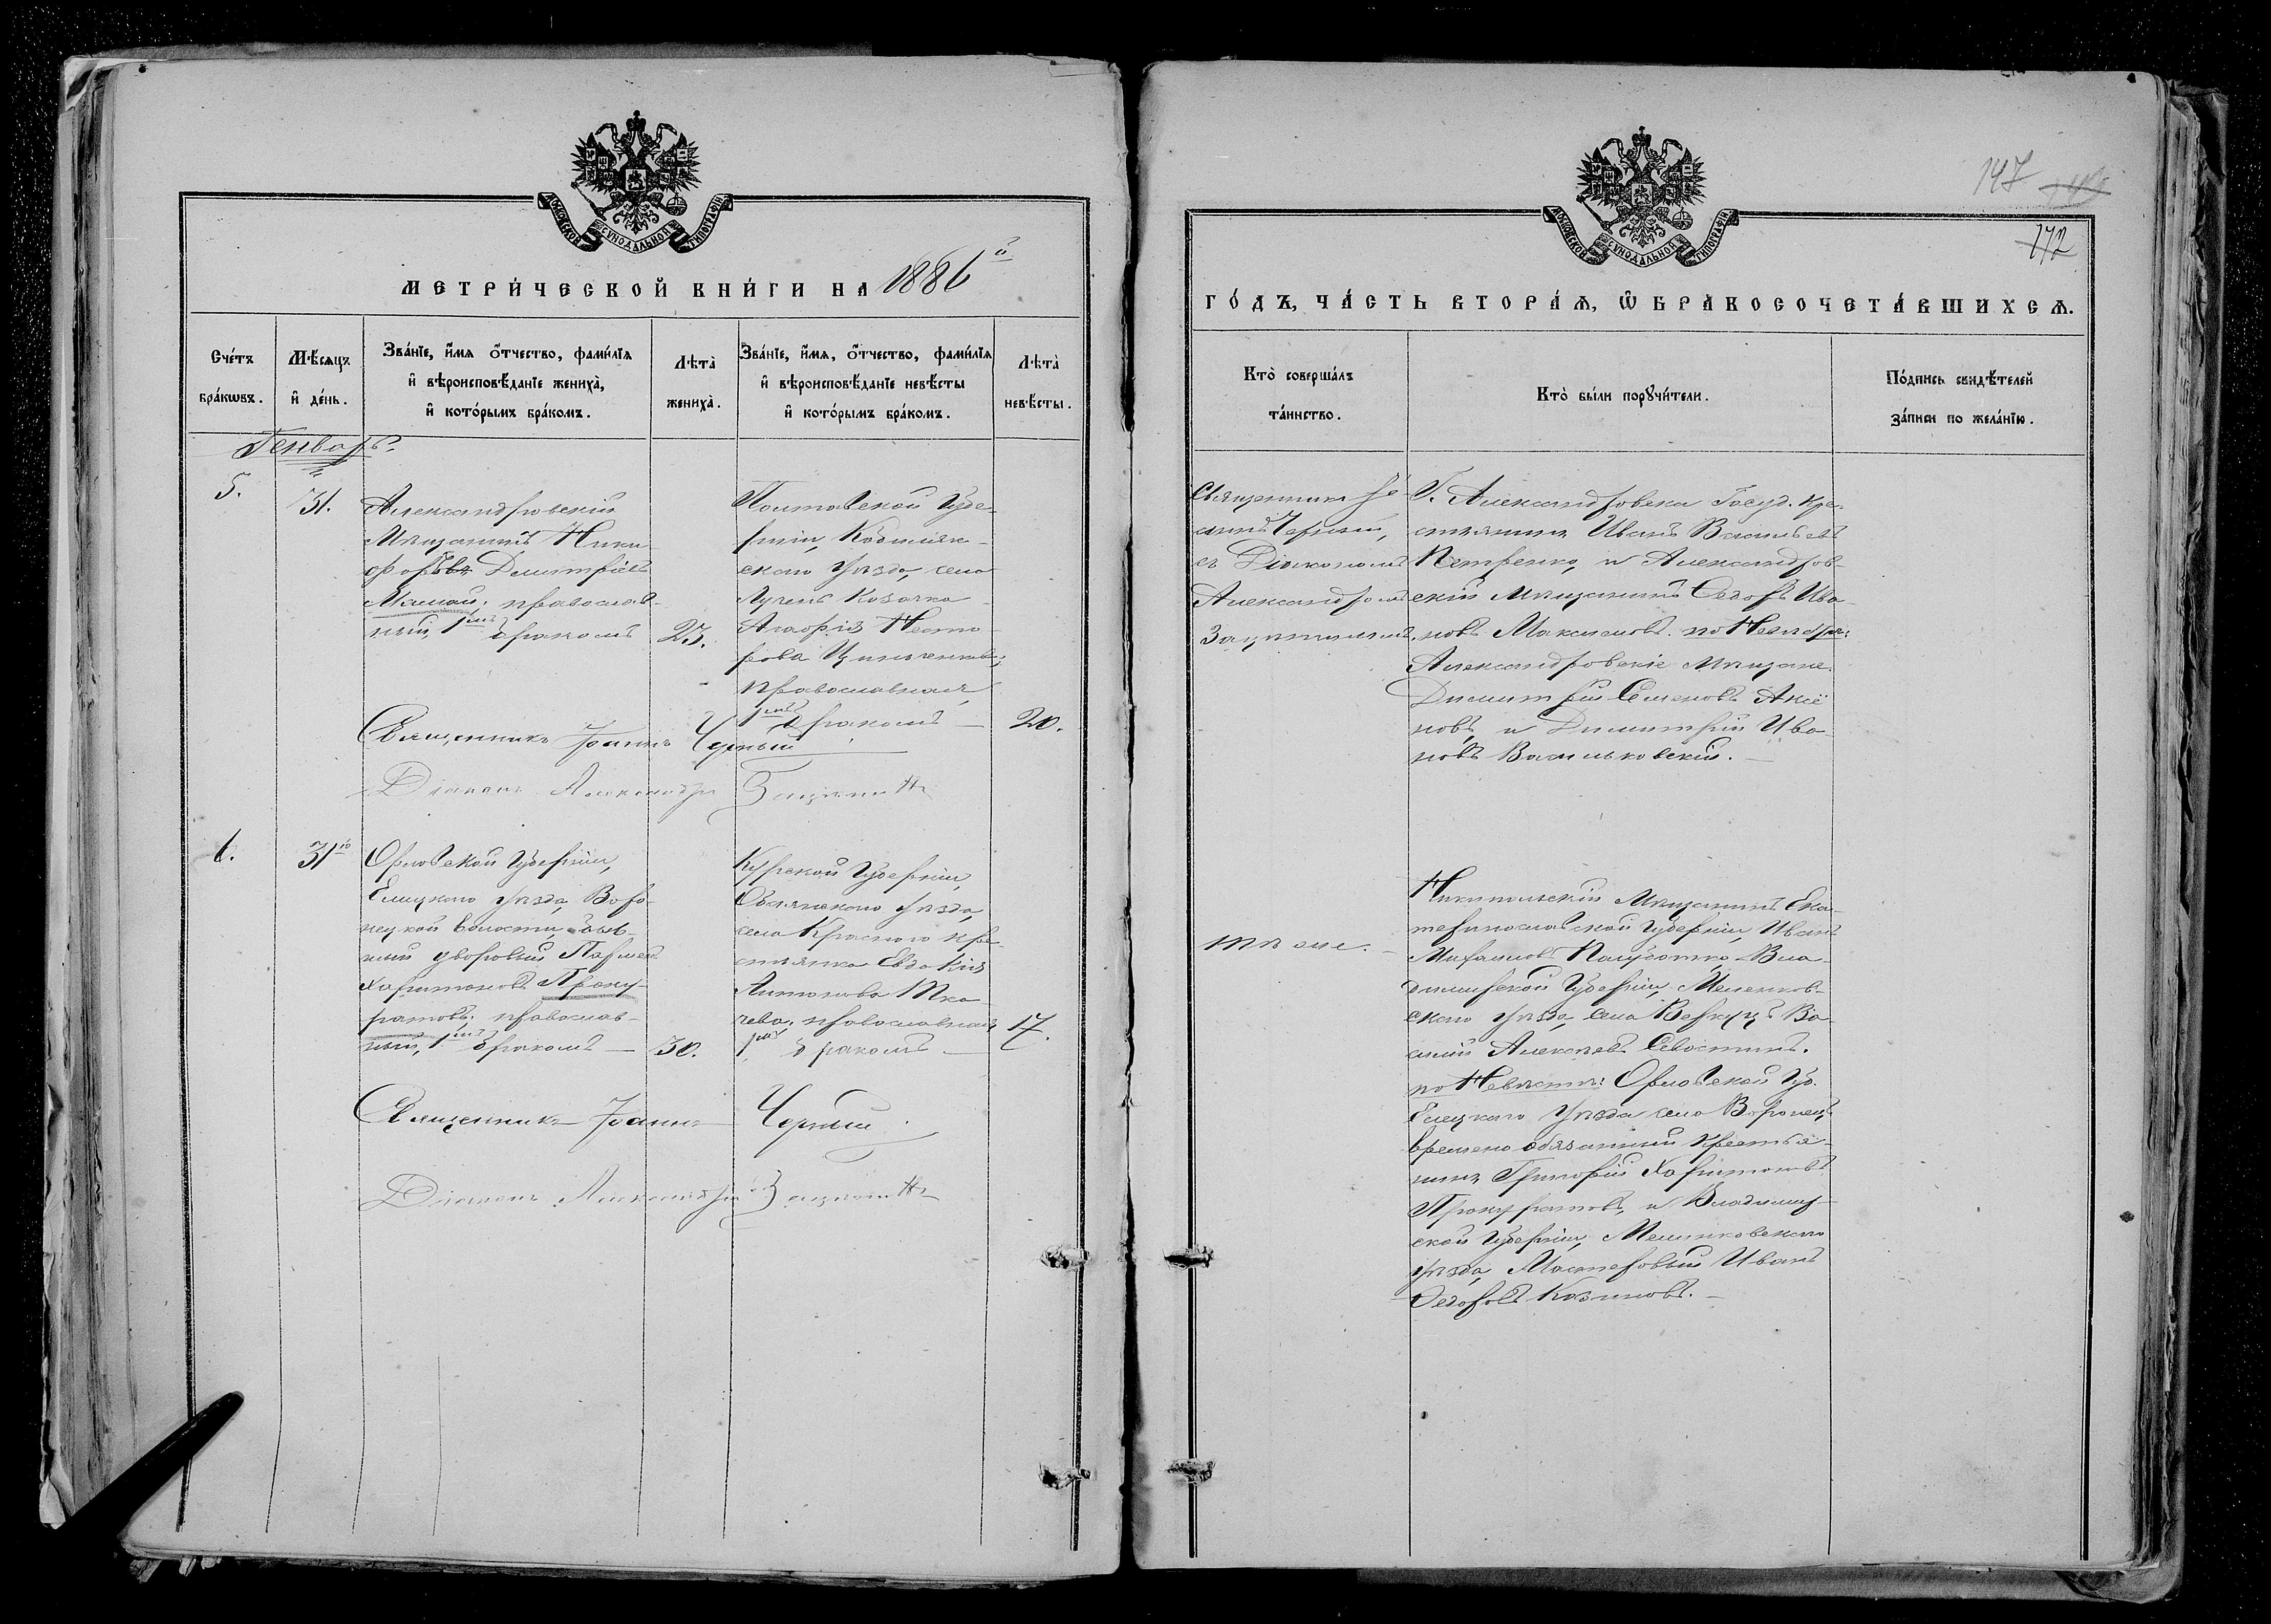 МОСКОВСКОЙ СѴНОДАЛЬНОЙ ТИПОГРАФІИ
МЕТРИ́ЧЕСКОЙ КНИ́ГИ НА 1886й
Сче́тъ бра́кѡвъ.
Мѣ́сяцъ и҆ де́нь.
Зва́нїе, и҆́мя ѻ҆́тчество, фами́лїя
и҆ вѣроисповѣ́данїе жениха̀,
и҆ кото́рымъ бра́комъ.
Лѣта̀ жениха̀.
Зва́нїе, и҆́мя, ѻ҆́тчество, фами́лїя
и҆ вѣроисповѣ́данїе невѣ́сты
и҆ кото́рымъ бра́комъ.
Лѣта̀ невѣ́сты.
Генварь.
5.
31.
Александровскій
Мѣщанинъ Ники-
форъ Димитріевъ
Мамай, православ-
ный, 1мъ бракомъ
23.
Полтавской Губе-
рніи, Кобыляк-
скаго уѣзда, села
Лучекъ Козачка
Агафія Несте-
рова
православная,
1мъ бракомъ —
20.
Священникъ Іоаннъ Черный
Діаконъ Александръ
6.
31го
Орловской Губерніи,
Елецкаго уѣзда, Воро-
нецкой волости, быв-
ный дворовый Парменъ
Харитоновъ Проку-
ратовъ, православ-
ный, 1мъ бракомъ —
30.
Курской Губерніи,
Обоянскаго уѣзда,
села Краснаго кре-
стьянка Евдокія
Антонова Тка-
чева, православная
1мъ бракомъ —
17.
Священникъ Іоаннъ Черный
Діаконъ Александръ
147
172
МОСКОВСКОЙ СѴНОДАЛЬНОЙ ТИПОГРАФІИ
ГО́ДЪ, ЧА́СТЬ ВТОРА́Ѧ, Ѽ БРАКОСОЧЕТА́ВШИХСѦ.
Кто̀ соверша́лъ та́инство.
Кто̀ бы́ли порꙋчи́тели.
По́дпись свидѣ́телей за́писи по жела́нїю.
Священникъ Іо-
аннъ Черный,
съ Діакономъ
Александромъ
Г. Александровска Госуд. Кре-
стьянинъ Иванъ Васильевъ
Петренко, и Александров-
скій Мѣщанинъ Ѳедоръ Ива-
новъ Максимовъ. по Невѣстѣ:
Александровскіе Мѣщане
Димитрій Семеновъ Аксё-
новъ, и Димитрій Ива-
новъ Васильковскій. —
тѣ же. —
Никопольскій Мѣщанинъ Ека-
теринославской Губерніи, Иванъ
Михайловъ Полуботко Вла-
димирской Губерніи, Меленков-
скаго уѣзда, села Ва-
силій Алексѣевъ Севостинъ.
по Невѣстѣ: Орловской Губ.
Елецкаго уѣзда села Воронецъ
временно обязанный крестья-
нинъ Григорій Харитоновъ
Прокуратовъ, и Владимир-
ской Губерніи, Меленковскаго
уѣзда, Мастеровый Иванъ
Ѳедоровъ Козиновъ. —